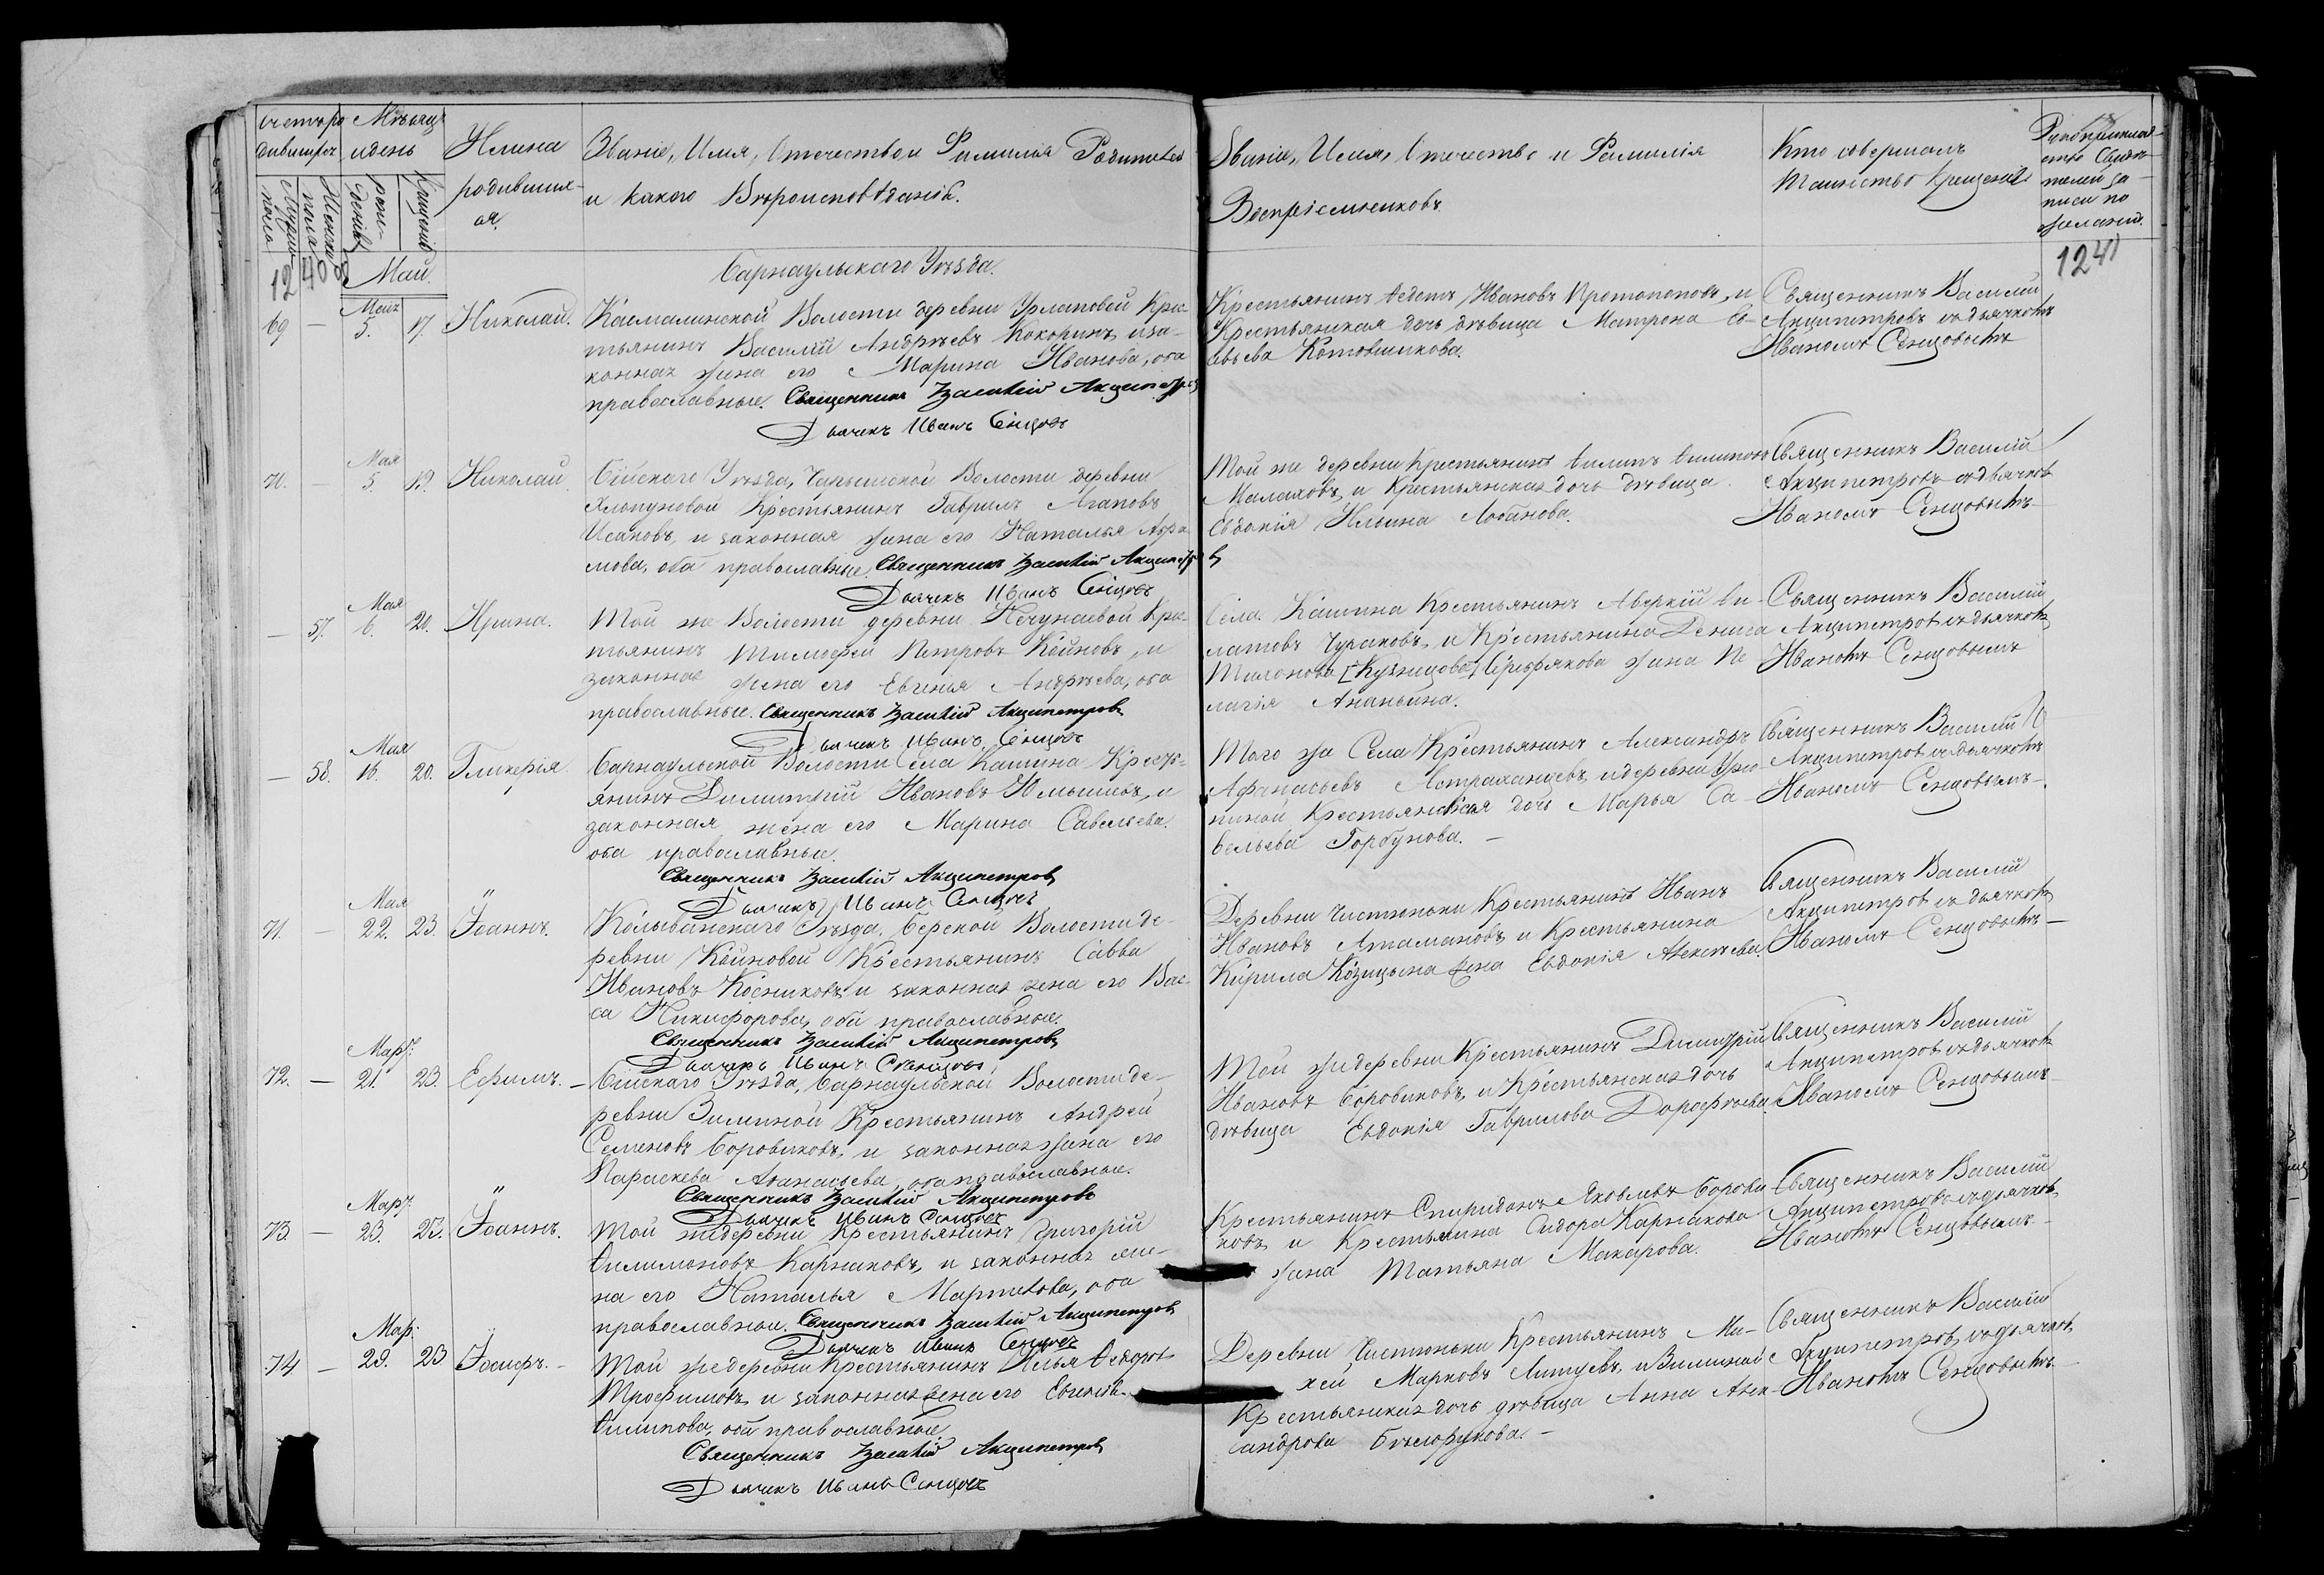 Мѣсяцъ
и день
Имена
родивших-
ся.
Званіе, Имя, Отечество и Фамилія Родителей
и какого Вѣроисповѣданія.
Мужска
пола
Женска
пола
рож-
денія
Крещенія
Званіе, Имя, Отечество и Фамилія
Воспріемниковъ
Кто совершалъ
Таинство Крещенія
Рукоприклад-
ство Свидѣ-
телей за-
писи по
желанію.
1240
1241
Май.
Барнаульскаго Уѣзда.
69 — Мая 5. 17. Николай.
Касмалинской Волости деревни Урлаповой Крес-
тьянинъ Василій Андреевъ Кокоринъ, и за-
конная жена его Марина Иванова, оба
православные. Священникъ Василій Акципетровъ
Дьячекъ Иванъ Сенцовъ
Крестьянинъ Ѳедотъ Ивановъ Протопоповъ, и
Крестьянская дочь дѣвица Матрона
Котовщикова.
Священникъ Василій
Акципетровъ съ дьячкомъ
Иваномъ Сенцовымъ
70. — Мая 5. 19. Николай.
Бійскаго Уѣзда, Чарышской Волости деревни
Хлопуновой Крестьянинъ Гаврилъ Агаповъ
Исаковъ, и законная жена его Наталья Абра-
мова, оба православные. Священникъ Василій Акципетровъ
Дьячекъ Иванъ Сенцовъ
Той же деревни Крестьянинъ Филипъ Филиповъ
Малаховъ, и Крестьянская дочь дѣвица
Евдокія Ильина Лобанова.
Священникъ Василій
Акципетровъ съ дьячкомъ
Иваномъ Сенцовымъ
— 57. Мая 6. 20. Ирина.
Той же Волости деревни Нечунаевой Крес-
тьянинъ Тимофей Петровъ Койновъ, и
законная жена его Евгенія Андреева, оба
православные. Священникъ Василій Акципетровъ
Дьячекъ Иванъ Сенцовъ
Села Кашина Крестьянинъ Аверкій Фи-
латовъ Чураковъ, и Крестьянина Дениса
Тихонова [Кузнецова] Серебрякова жена Пе-
лагія Ананьина.
Священникъ Василій
Акципетровъ съ дьячкомъ
Иваномъ Сенцовымъ
— 58. Мая 16. 20. Гликерія.
Барнаульской Волости Села Кашина Кресть-
янинъ Димитрій Ивановъ Юмышевъ, и
законная жена его Марина Савельева.
оба православные.
Священникъ Василій Акципетровъ
Дьячекъ Иванъ Сенцовъ
Того же Села Крестьянинъ Александръ
Афанасьевъ Астраханцевъ, и деревни
Крестьянская дочь Марья Са-
вельева Горбунова. —
Священникъ Василій
Акципетровъ съ дьячкомъ
Иваномъ Сенцовымъ —
71. — Мая 22. 23. Іоаннъ.
Колыванскаго Уѣзда, Бердской Волости де-
ревни Койновой Крестьянинъ Савва
Ивановъ Косниковъ, и законная жена его Вас-
са Никифорова, оба православные.
Священникъ Василій Акципетровъ
Дьячекъ Иванъ Сенцовъ
Деревни Чистюньки Крестьянинъ Иванъ
Ивановъ Атамановъ, и Крестьянина
Кирила Козицына жена Евдокія Алексѣева.
Священникъ Василій
Акципетровъ съ дьячкомъ
Иваномъ Сенцовымъ —
72. — 21. 23. Ефимъ. —
Бійскаго Уѣзда, Барнаульской Волости де-
ревни Зиминой Крестьянинъ Андрей
Семеновъ Боровиковъ, и законная жена его
Параскева Аѳанасьева, оба православные.
Священникъ Василій Акципетровъ
Дьячекъ Иванъ Сенцовъ
Той же деревни Крестьянинъ Димитрій
Ивановъ Боровиковъ, и Крестьянская дочь
дѣвица Евдокія Гаврилова Дорофѣева.
Священникъ Василій
Акципетровъ съ дьячкомъ
Иваномъ Сенцовымъ
73. — 23. 25. Іоаннъ.
Той же деревни Крестьянинъ Григорій
Филимоновъ Карнаковъ, и законная же-
на его Наталья, оба
православные. Священникъ Василій Акципетровъ
Дьячекъ Иванъ Сенцовъ
Крестьянинъ Спиридонъ Яковлевъ Борови-
ковъ, и Крестьянина Сидора Карнакова
жена Татьяна Макарова.
Священникъ Василій
Акципетровъ съ дьячкомъ
Иваномъ Сенцовымъ —
74 — 23 Іосифъ. —
Той же деревни Крестьянинъ Илья Ѳедоровъ
Трофимовъ, и законная жена его Евгенія
Филипова, оба православные.
Священникъ Василій Акципетровъ
Дьячекъ Иванъ Сенцовъ
Деревни Чистюньки Крестьянинъ Ми-
хей Марковъ, и Зиминой
Крестьянская дочь дѣвица Анна Алек-
сандрова Бѣлорукова. —
Священникъ Василій
Акципетровъ, съ дьячкомъ
Иваномъ Сенцовымъ